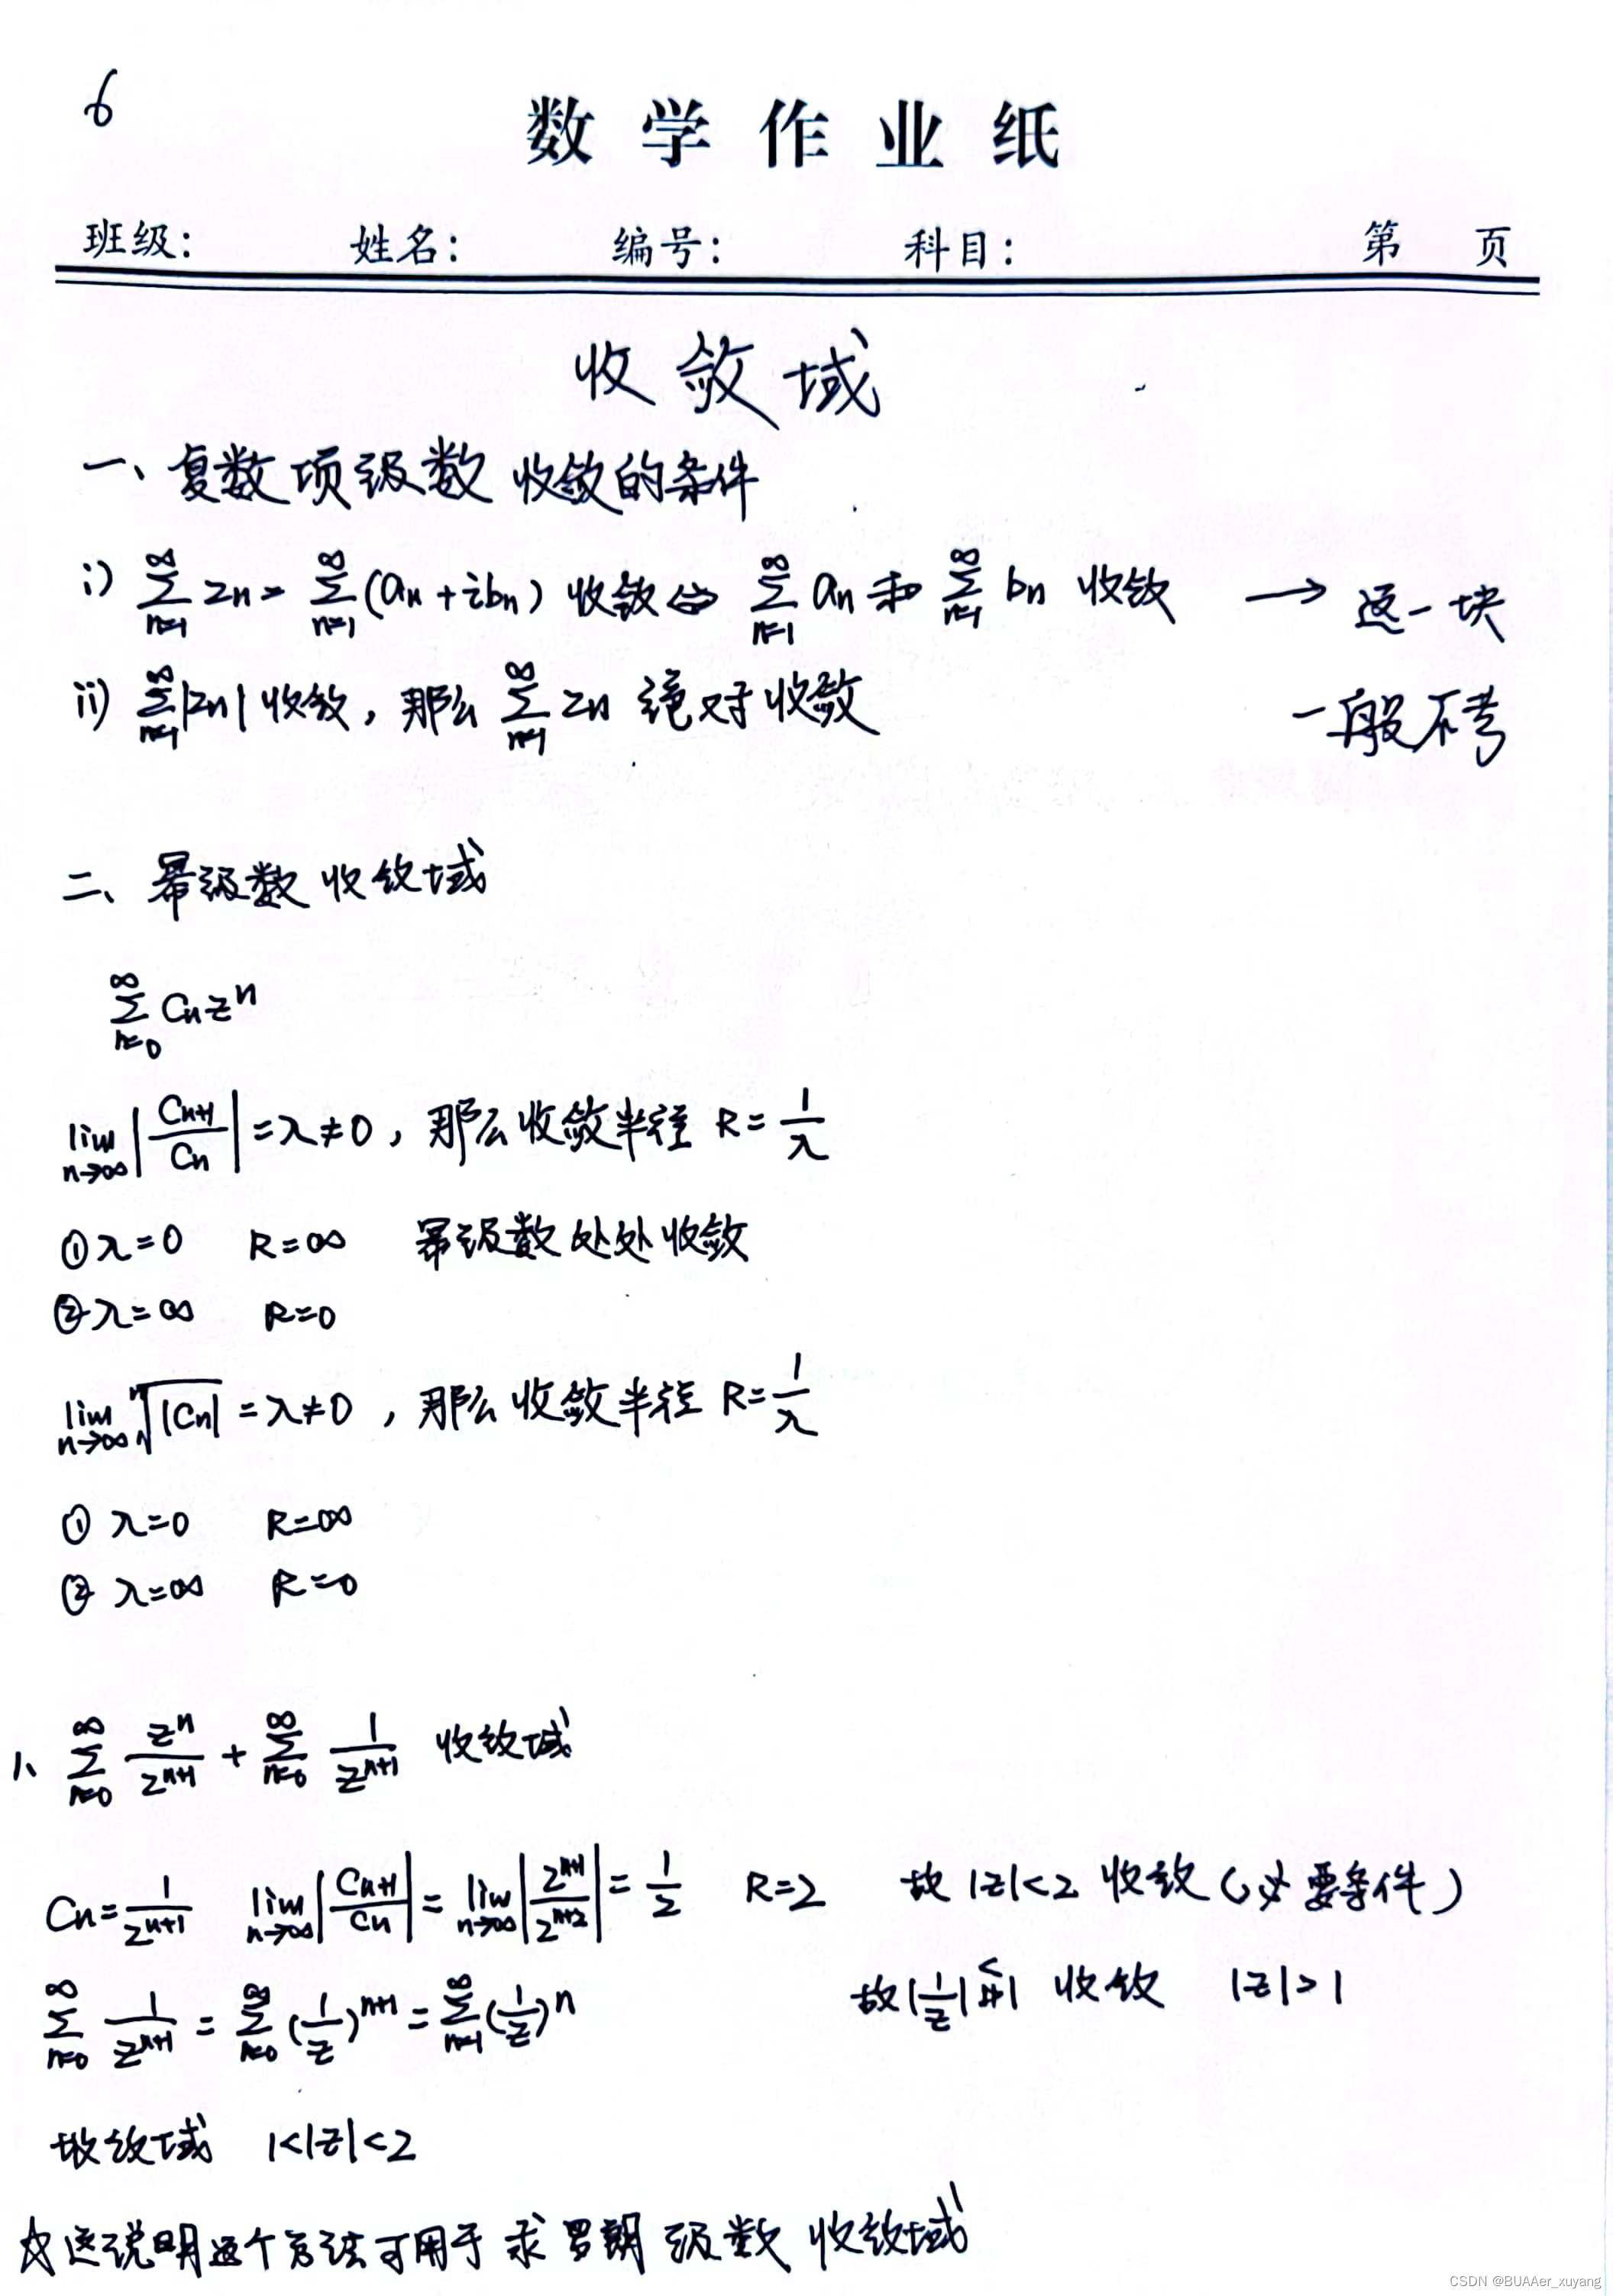 6
数学作业纸
班级: 姓名: 编号: 科目: 第 页
收敛域
一、复数项级数收敛的条件
i) $\sum_{n=1}^{\infty} z_n = \sum_{n=1}^{\infty}(a_n+ib_n)$ 收敛 ⇔ $\sum_{n=1}^{\infty} a_n$ 和 $\sum_{n=1}^{\infty} b_n$ 收敛 → 这一块
ii) $\sum_{n=1}^{\infty}|z_n|$ 收敛, 那么 $\sum_{n=1}^{\infty} z_n$ 绝对收敛 一般不考
二、幂级数收敛域
$\sum_{n=0}^{\infty} C_n z^n$
$\lim_{n\to\infty}\left|\frac{C_{n+1}}{C_n}\right| = \lambda \neq 0$, 那么收敛半径 $R=\frac{1}{\lambda}$
① λ=0 R=∞ 幂级数处处收敛
② λ=∞ R=0
$\lim_{n\to\infty}\sqrt[n]{|C_n|} = \lambda \neq 0$, 那么收敛半径 $R=\frac{1}{\lambda}$
① λ=0 R=∞
② λ=∞ R=0
1、 $\sum_{n=0}^{\infty}\frac{z^n}{2^{n+1}} + \sum_{n=0}^{\infty}\frac{1}{z^{n+1}}$ 收敛域
$C_n=\frac{1}{2^{n+1}}$ $\lim_{n\to\infty}\left|\frac{C_{n+1}}{C_n}\right| = \lim_{n\to\infty}\left|\frac{2^{n+1}}{2^{n+2}}\right| = \frac{1}{2}$ R=2 故 |z|<2 收敛(必要条件)
$\sum_{n=0}^{\infty}\frac{1}{z^{n+1}} = \sum_{n=0}^{\infty}(\frac{1}{z})^{n+1} = \sum_{n=1}^{\infty}(\frac{1}{z})^n$ 故 $|\frac{1}{z}|<1$ 收敛 |z|>1
故收敛域 1<|z|<2
☆这说明这个方法可用于求罗朗级数收敛域
CSDN @BUAAer_xuyang